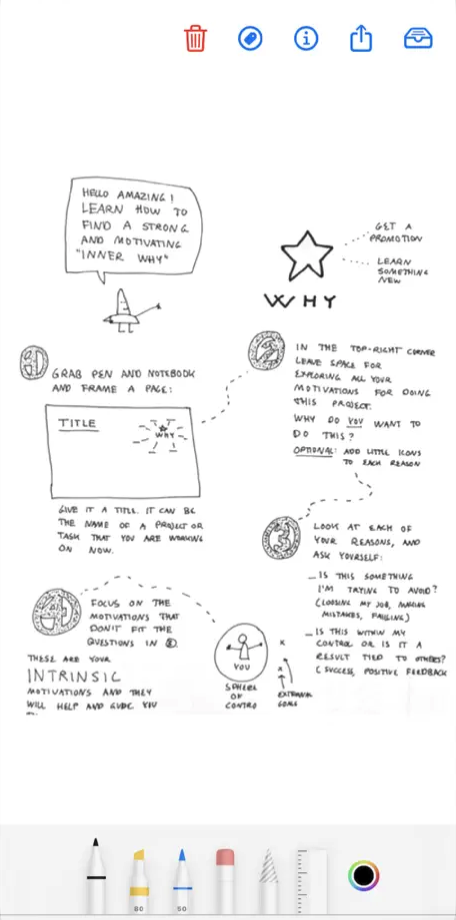 HELLO AMAZING!
LEARN HOW TO
FIND A STRONG
AND MOTIVATING
"INNER WHY"
GET A
PROMOTION
LEARN
SOMETHING
NEW
WHY
1
GRAB PEN AND NOTEBOOK
AND FRAME A PAGE:
TITLE
WHY
GIVE IT A TITLE. IT CAN BE
THE NAME OF A PROJECT OR
TASK THAT YOU ARE WORKING
ON NOW.
2
IN THE TOP-RIGHT CORNER
LEAVE SPACE FOR
EXPLORING ALL YOUR
MOTIVATIONS FOR DOING
THIS PROJECT.
WHY DO YOU WANT TO
DO THIS?
OPTIONAL: ADD LITTLE ICONS
TO EACH REASON
3
LOOK AT EACH OF
YOUR REASONS, AND
ASK YOURSELF:
_ IS THIS SOMETHING
I'M TRYING TO AVOID?
(LOOSING MY JOB, MAKING
MISTAKES, FAILING)
_ IS THIS WITHIN MY
CONTROL OR IS IT A
RESULT TIED TO OTHERS?
(SUCCESS, POSITIVE FEEDBACK
4
FOCUS ON THE
MOTIVATIONS THAT
DON'T FIT THE
QUESTIONS IN 3.
THESE ARE YOUR
INTRINSIC
MOTIVATIONS AND THEY
WILL HELP AND GUIDE YOU
YOU
SPHERE
OF
CONTRO
EXTERNAL
GOALS
80
50